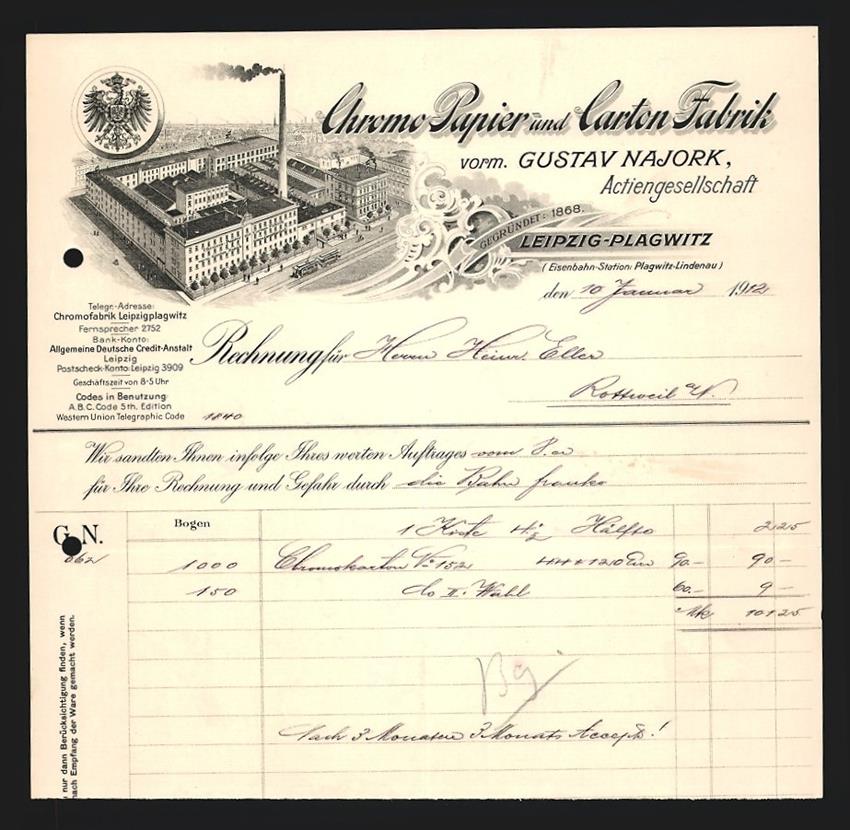 Chromo Papier und Carton Fabrik
vorm. GUSTAV NAJORK,
Actiengesellschaft
GEGRÜNDET: 1868.
LEIPZIG-PLAGWITZ
(Eisenbahn-Station: Plagwitz-Lindenau)
den 10 Januar 1912
Telegr.-Adresse:
Chromofabrik Leipzigplagwitz
Fernsprecher 2752
Bank-Konto:
Allgemeine Deutsche Credit-Anstalt
Leipzig
Postscheck-Konto: Leipzig 3909
Geschäftszeit von 8-5 Uhr
Codes in Benutzung:
A.B.C. Code 5th. Edition
Western Union Telegraphic Code
1840
Rechnung für Herrn Heinr. Eller
Rottweil a/N.
Wir sandten Ihnen infolge Ihres werten Auftrages vom 8. cr
für Ihre Rechnung und Gefahr durch die Bahn franko
G. N. Bogen 1 Kiste 4½ Hälfte 2 25
662 1000 Chromokarton No 152 90.- 90 -
150 do II. Wahl 60.- 9 -
Mk 101 25
Nach 3 Monaten 3 Monats Accept!
nur dann Berücksichtigung finden, wenn
nach Empfang der Ware gemacht werden.